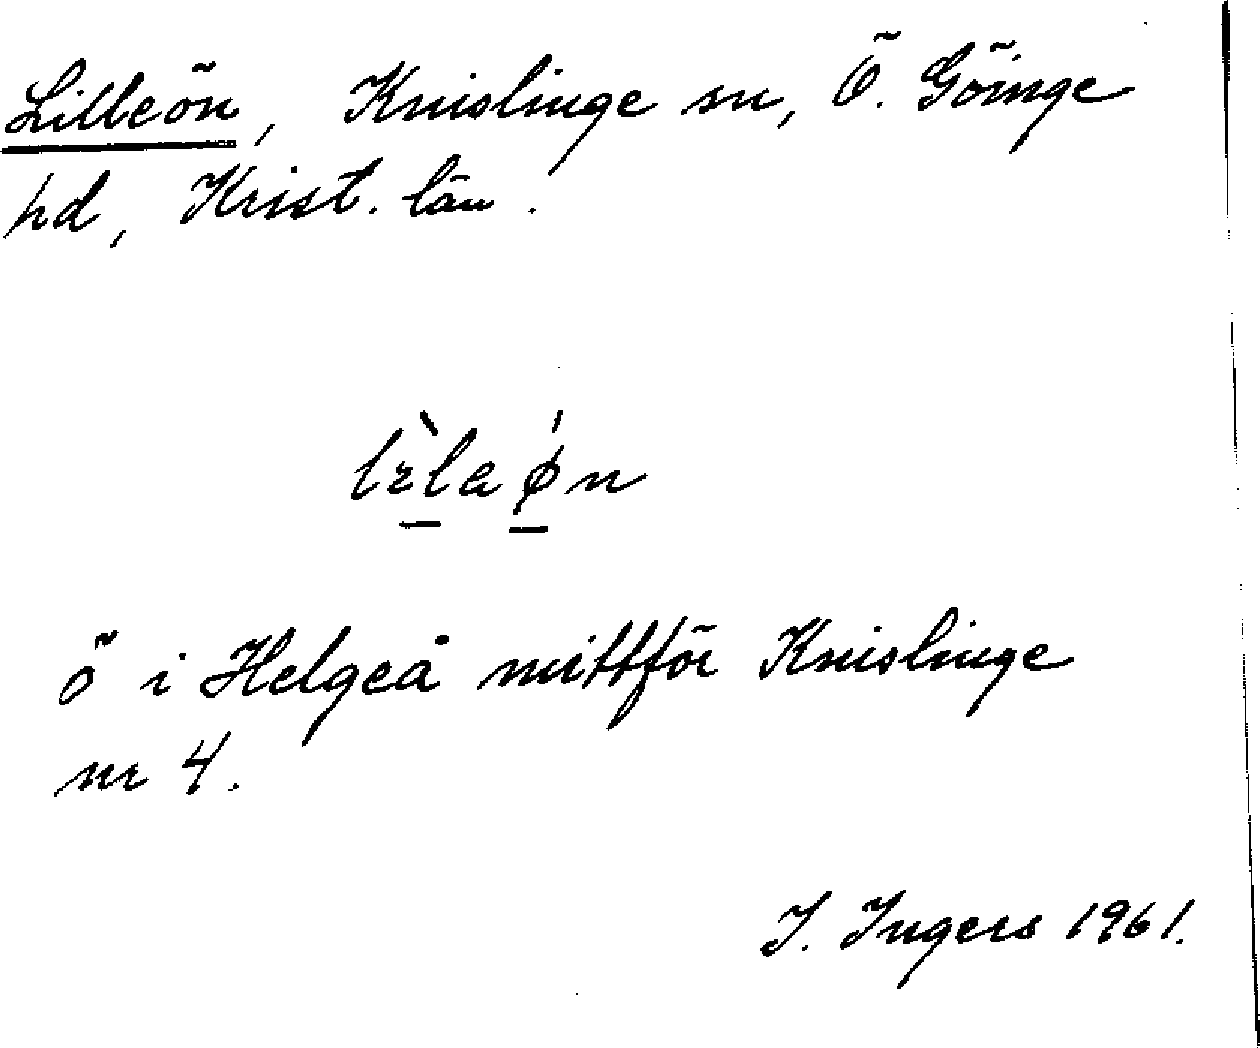 Lilleön, Knislinge sn, Ö. Göinge
hd, Krist. län.
lìla ǿn
ö i Helgeå mittför Knislinge
nr 4.
I. Ingers 1961.